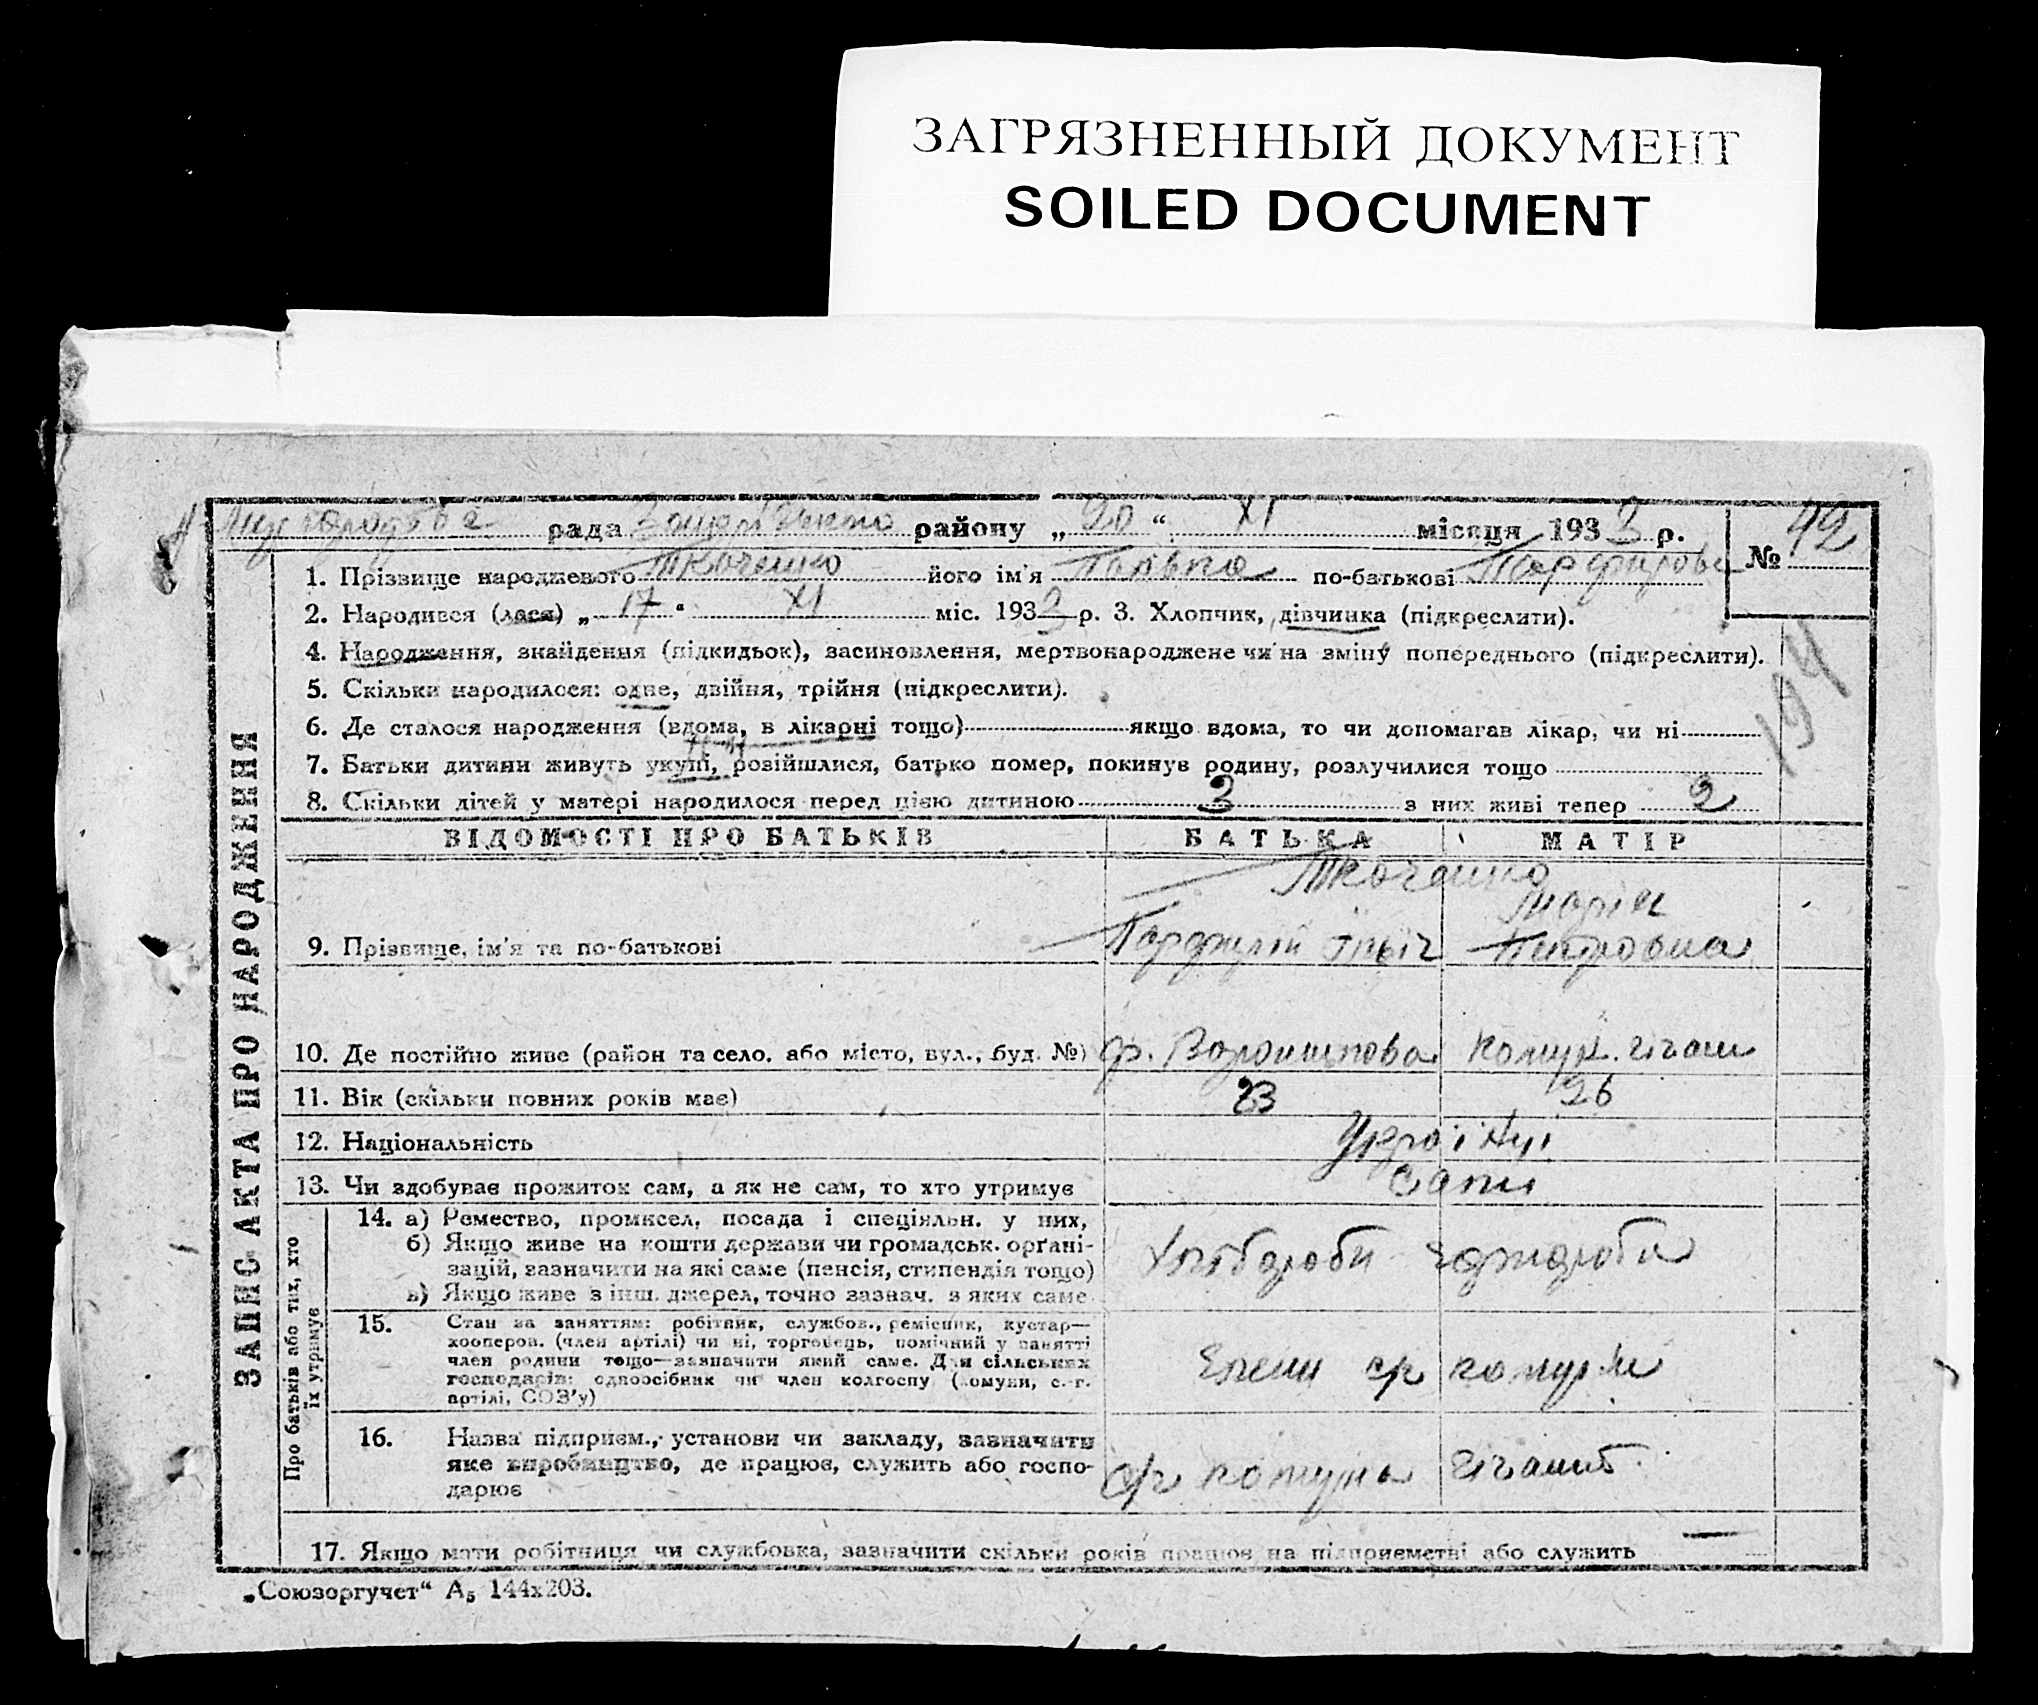 ЗАГРЯЗНЕННЫЙ ДОКУМЕНТ
SOILED DOCUMENT
рада району „20“ XI місяця 1933 р.
№ 42
1. Прізвище народженого Ткаченко його ім'я по-батькові
2. Народився (лася) „17“ XI міс. 1933 р. 3. Хлопчик, дівчинка (підкреслити).
4. Народження, знайдення (підкидьок), засиновлення, мертвонароджене чи на зміну попереднього (підкреслити).
194
5. Скільки народилося: одне, двійня, трійня (підкреслити).
6. Де сталося народження (вдома, в лікарні тощо) якщо вдома, то чи допомагав лікар, чи ні
7. Батьки дитини живуть укупі, розійшлися, батько помер, покинув родину, розлучилися тощо
8. Скільки дітей у матері народилося перед цією дитиною 3 з них живі тепер 2
ВІДОМОСТІ ПРО БАТЬКІВ БАТЬКА МАТІР
Ткаченко
Марія
9. Прізвище, ім'я та по-батькові Петровна
10. Де постійно живе (район та село, або місто, вул., буд. №) Комун. гігант
11. Вік (скільки повних років має) 23 26
12. Національність Українці
13. Чи здобуває прожиток сам, а як не сам, то хто утримує Сами
Про батьків або тих, хто їх утримує
14. а) Ремество, промисел, посада і спеціяльн. у них,
б) Якщо живе на кошти держави чи громадськ. орґані-
зацій, зазначити на які саме (пенсія, стипендія тощо)
в) Якщо живе з інш. джерел, точно зазнач. з яких саме
Хлібороби
15. Стан за заняттям: робітник, службов., ремісник, кустар—
хооперов. (член артілі) чи ні, торговець, помічний у занятті
член родини тощо—зазначити який саме. Для сільських
господарів: одноосібник чи член колгоспу (комуни, с.-г.
артілі, СОЗ'у)
Члени с/г комуни
16. Назва підприєм., установи чи закладу, зазначити
яке виробництво, де працює, служить або госпо-
дарює
с/г комуна Гігант
17. Якщо мати робітниця чи службовка, зазначити скільки років працює на підприємстві або служить —
ЗАПИС АКТА ПРО НАРОДЖЕННЯ
„Союзоргучет“ А₅ 144х203.